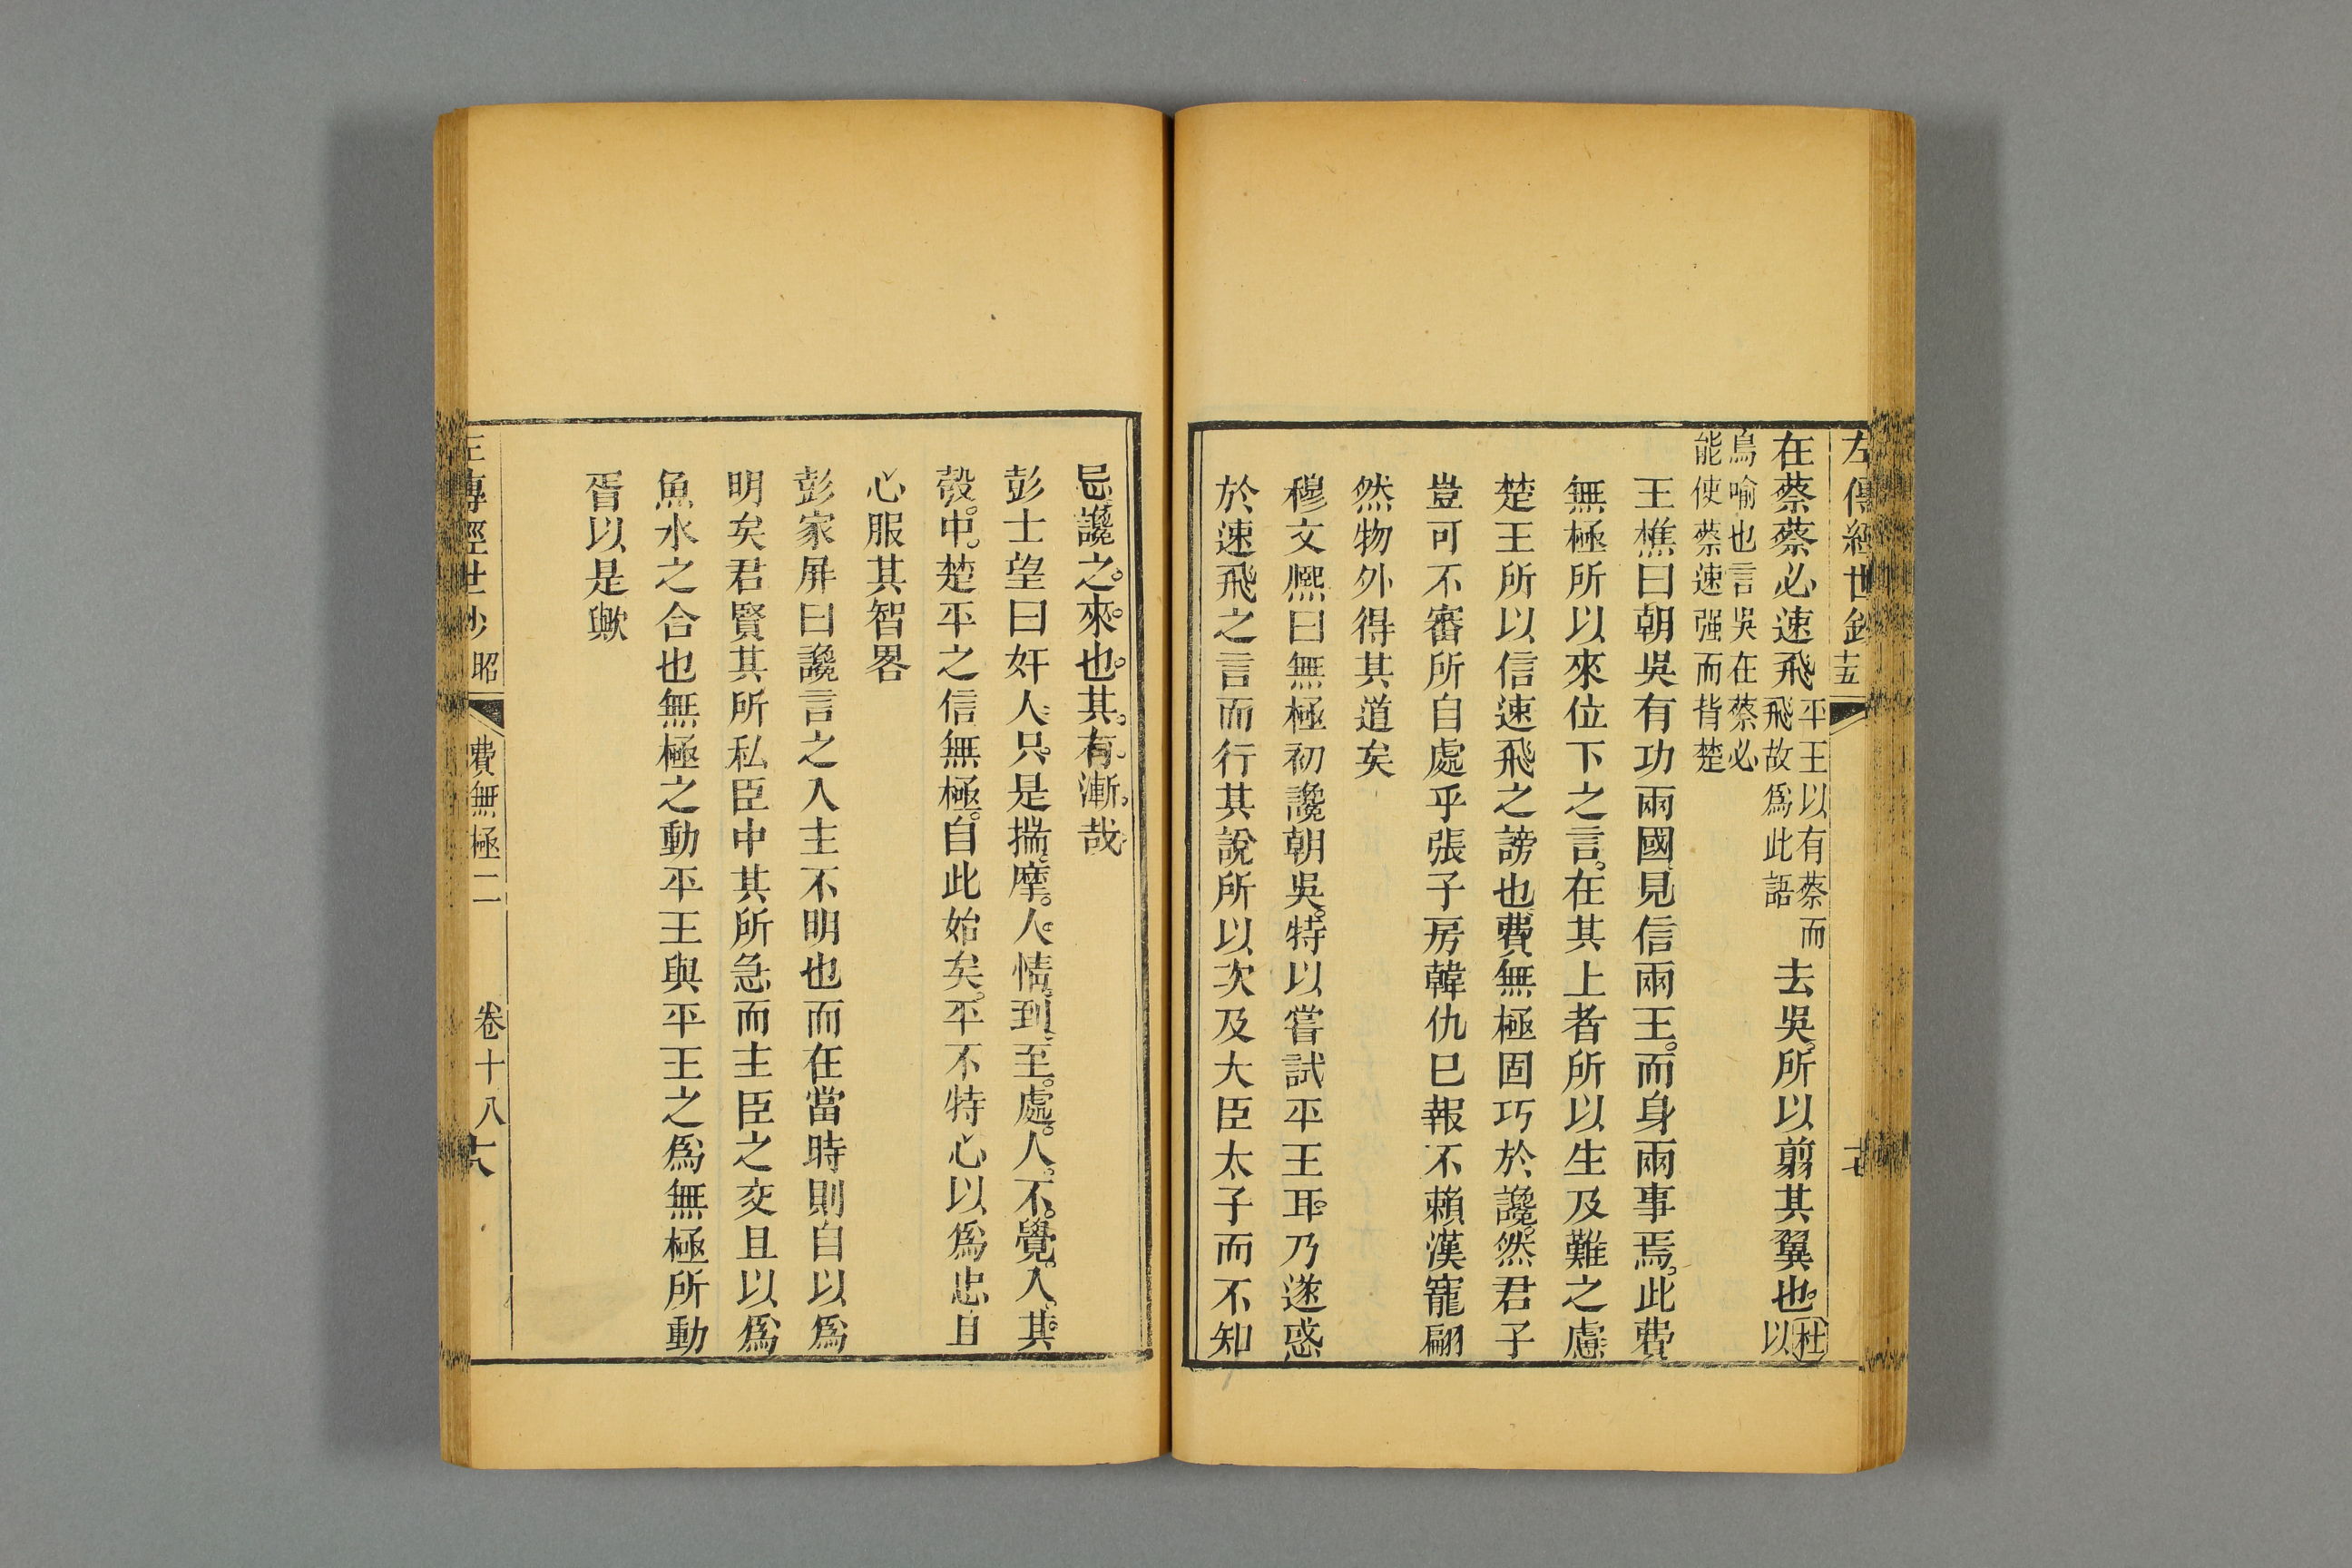 左傳經世鈔
十五
在蔡蔡必速飛平王以有蔡而飛故爲此語去吳所以翦其翼也杜以
鳥喻也言吳在蔡必能使蔡速强而背楚
王樵曰朝吳有功兩國見信兩王而身兩事焉此費
無極所以來位下之言在其上者所以生及難之慮
楚王所以信速飛之謗也費無極固巧於讒然君子
豈可不審所自處乎張子房韓仇已報不賴漢寵翩
然物外得其道矣
穆文熈曰無極初讒朝吳特以嘗試平王耳乃遂惑
於速飛之言而行其說所以次及大臣太子而不知
忌讒之來也其有漸哉
彭士望曰奸人只是揣摩人情到至處人不覺入其
彀中楚平之信無極自此始矣平不特心以爲忠且
心服其智畧
彭家屏曰讒言之入主不明也而在當時則自以爲
明矣君賢其所私臣中其所急而主臣之交且以爲
魚水之合也無極之動平王與平王之爲無極所動
胥以是歟
左傳經世鈔 昭
費無極二
卷十八